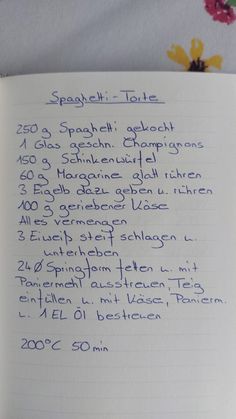 Spaghetti-Torte
250 g Spaghetti gekocht
1 Glas geschn. Champignons
150 g Schinkenwürfel
60 g Margarine glatt rühren
3 Eigelb dazu geben u. rühren
100 g geriebener Käse
Alles vermengen
3 Eiweiß steif schlagen u.
unterheben
24 Ø Springform fetten u. mit
Paniermehl ausstreuen, Teig
einfüllen u. mit Käse, Panierm.
u. 1 EL Öl bestreuen
200°C 50 min